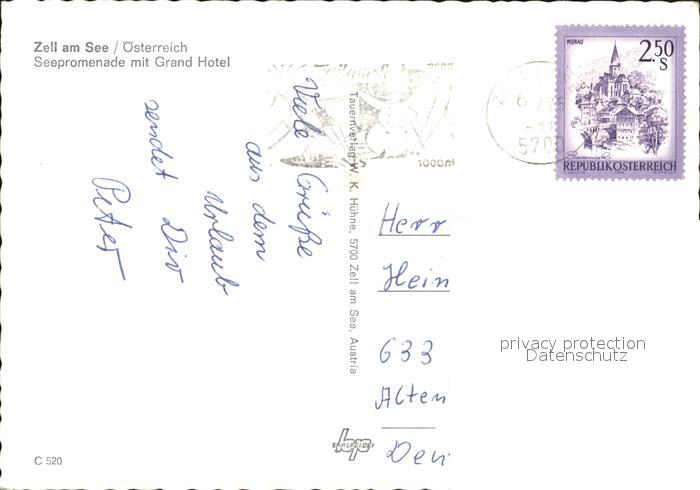 Zell am See / Österreich
Seepromenade mit Grand Hotel
Viele Grüße
aus dem
Urlaub
sendet Dir
Peter
Tauernverlag W. K. Hühne, 5700 Zell am See, Austria
1000m
5700
MURAU
2.50
S
REPUBLIK ÖSTERREICH
Herr
Hein
633
Alten
privacy protection
Datenschutz
C 520